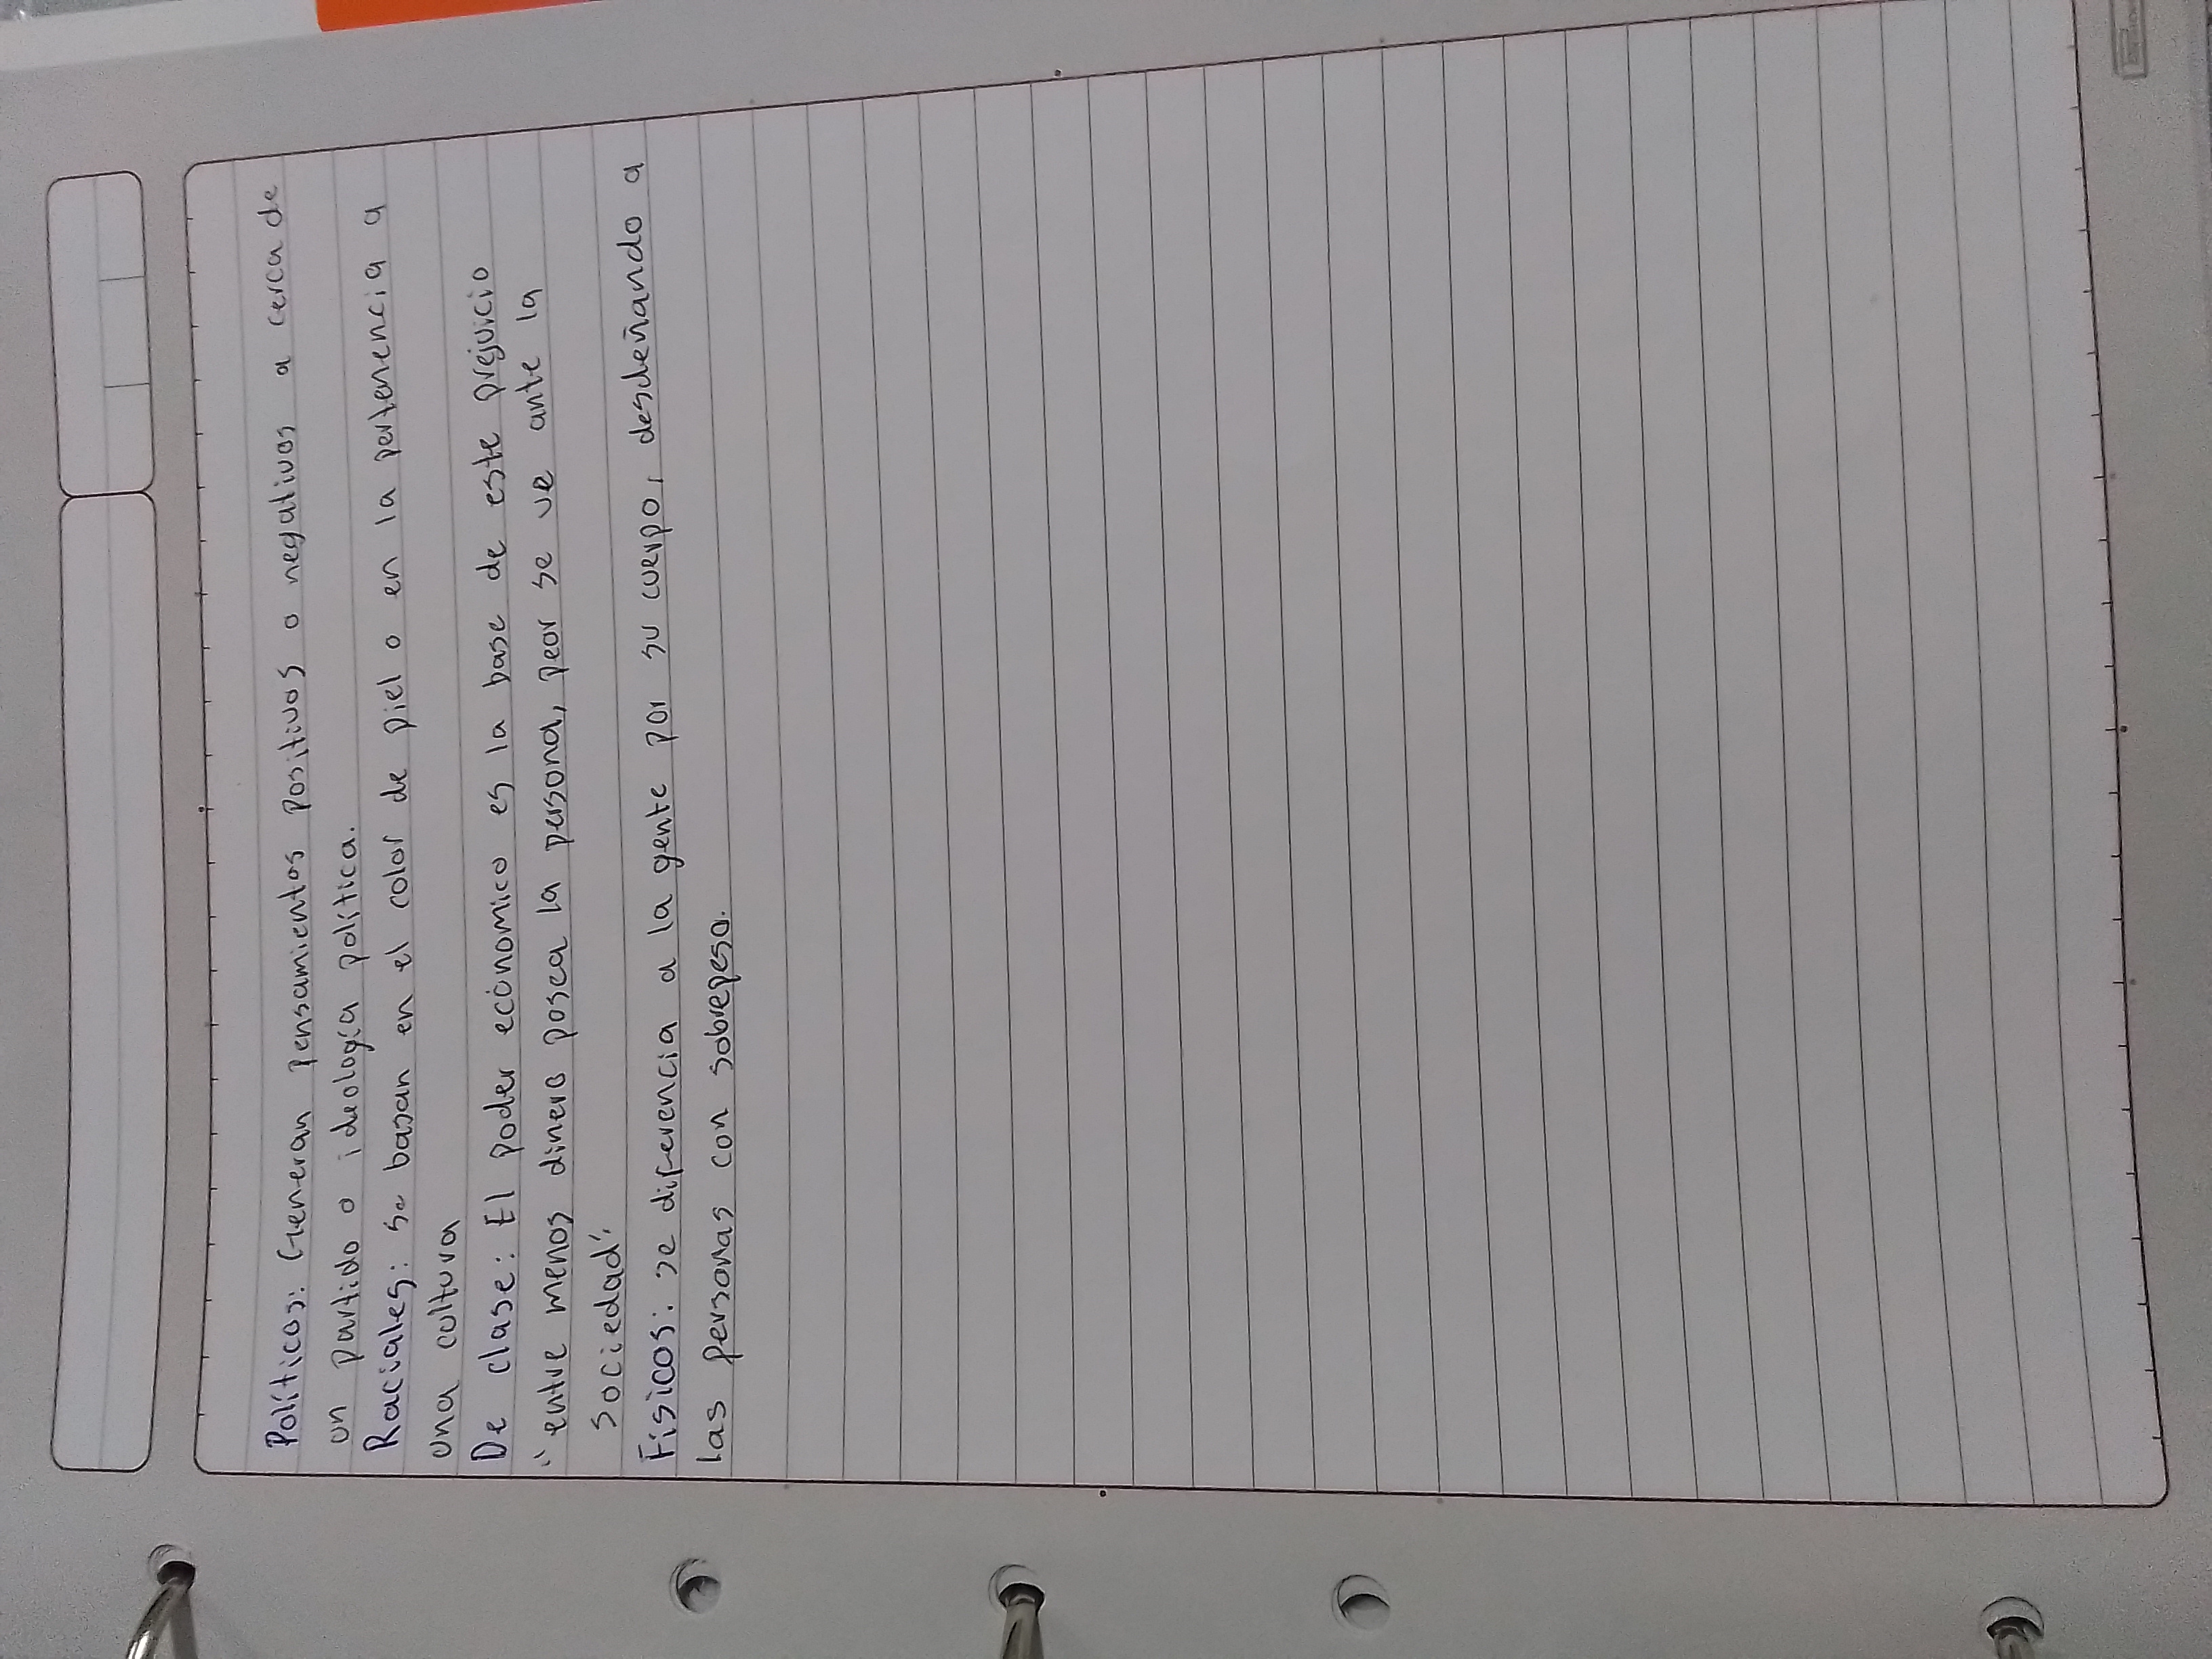 Políticos: Generan pensamientos positivos o negativos a cerca de
un partido o ideología política.
Raciales: se basan en el color de piel o en la pertenencia a
una cultura
De clase: El poder económico es la base de este prejuicio
"entre menos dinero posea la persona, peor se ve ante la
sociedad"
Físicos: se diferencia a la gente por su cuerpo, desdeñando a
las personas con sobrepeso.